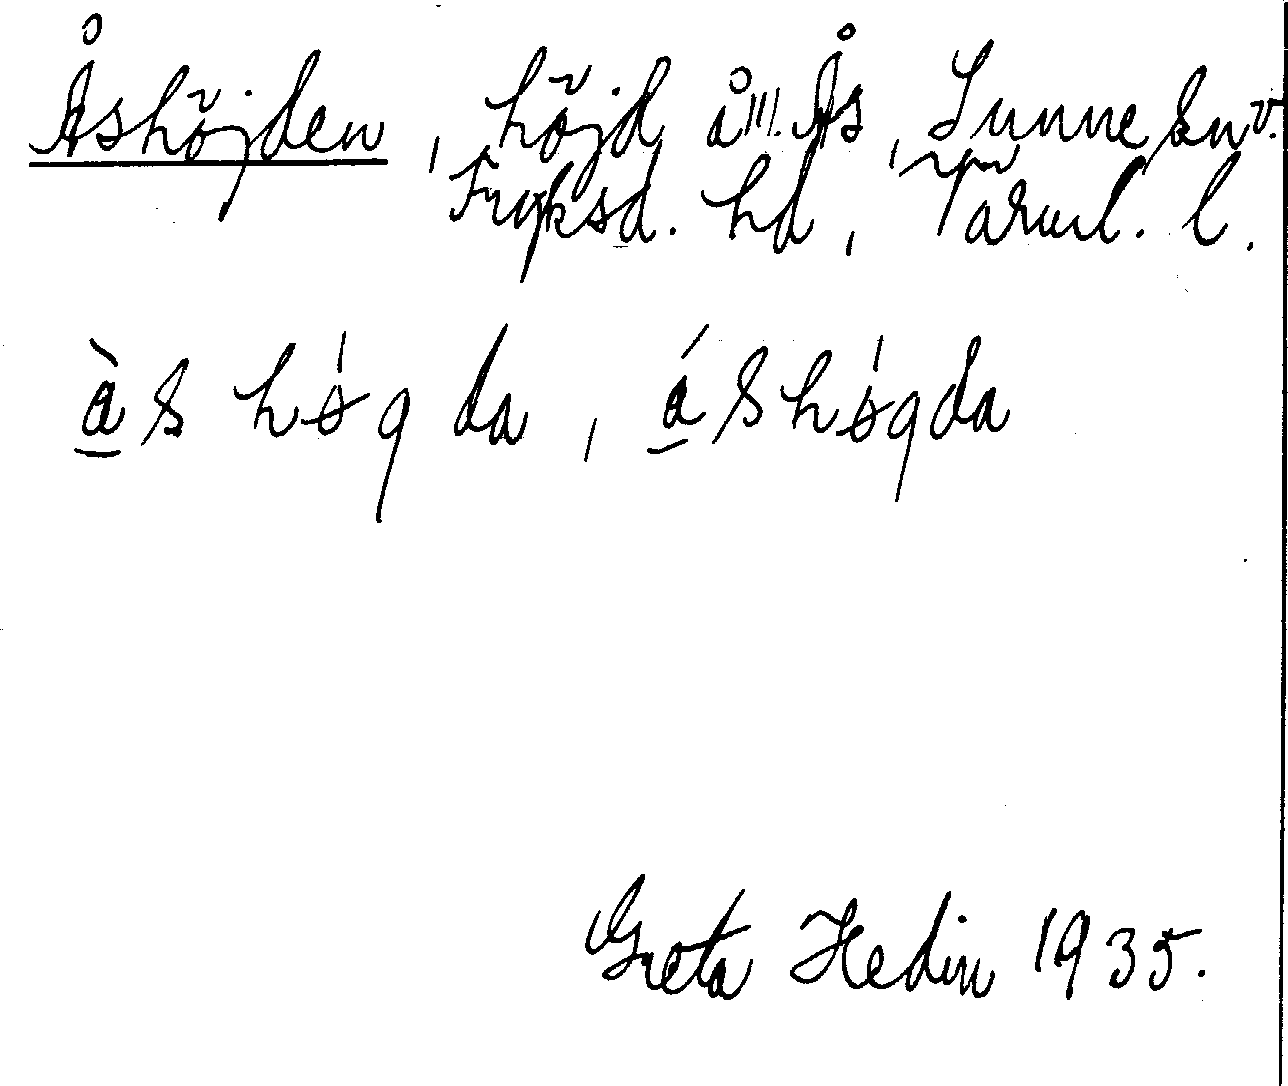 Åshöjden, höjd å III. Ås, Sunne sn v.
Fryksd. hd, Värml. l.
à̱s høgda, á̱shøgda
Greta Hedin 1935.